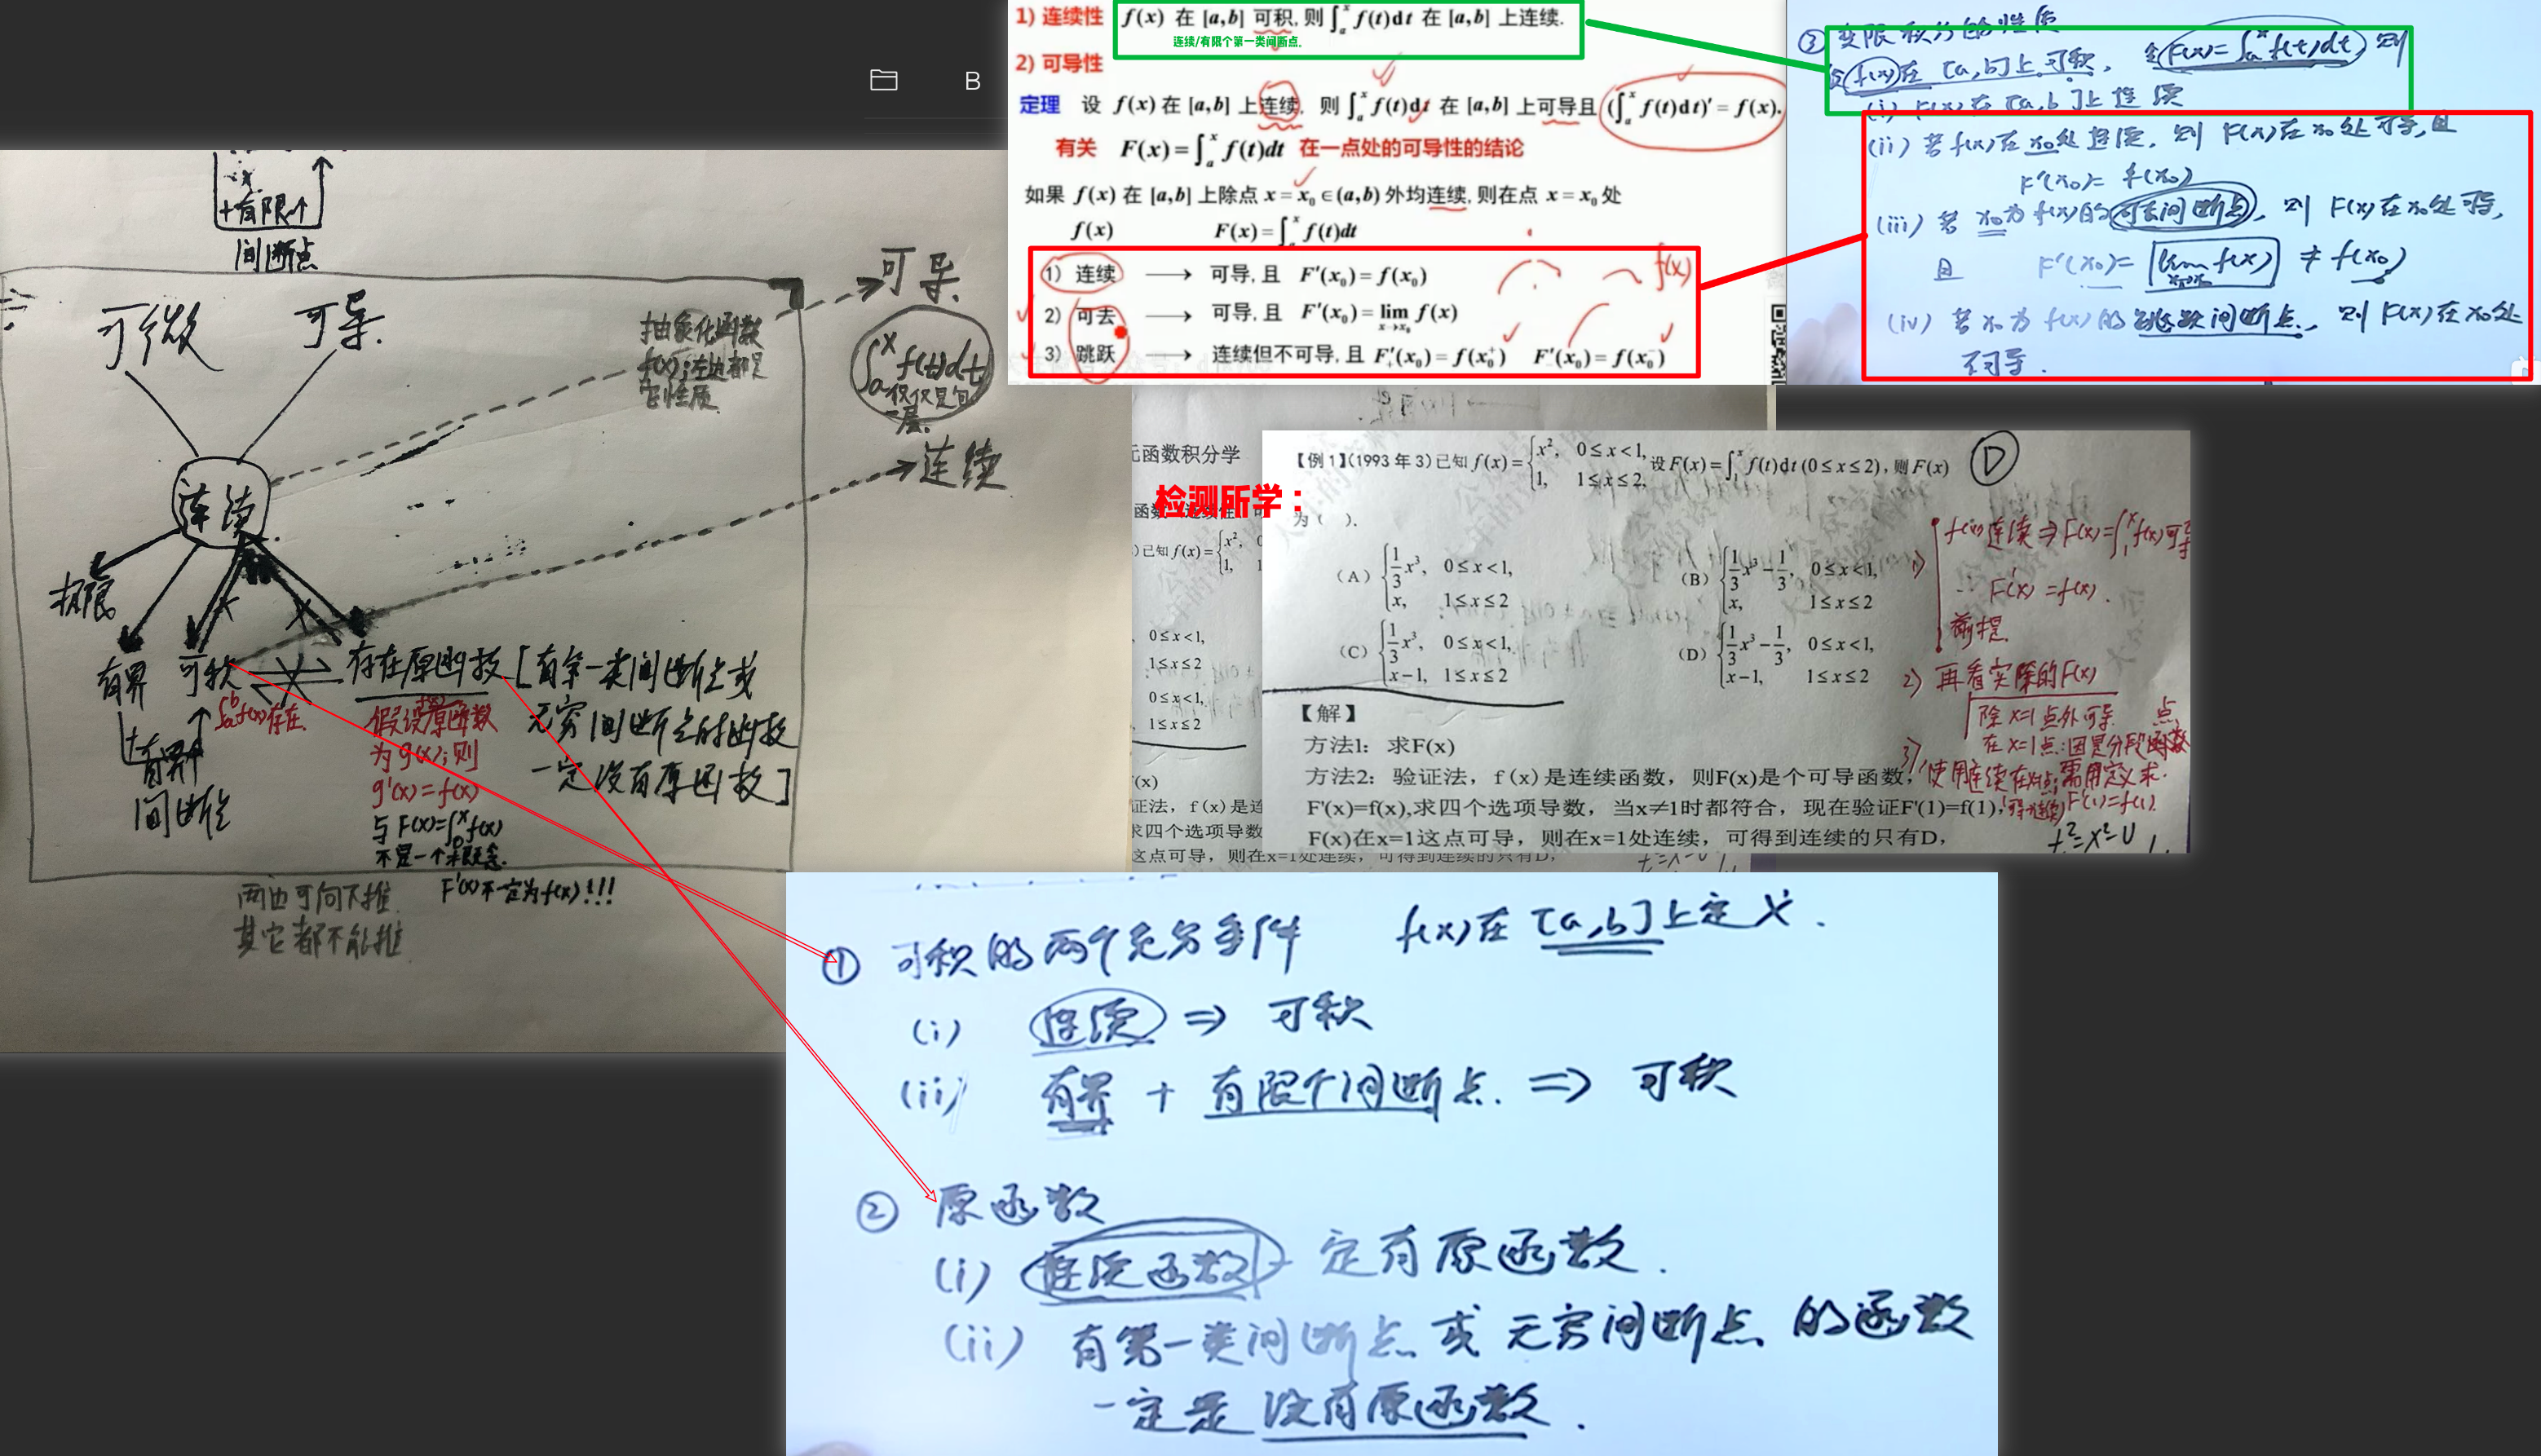 B
1) 连续性 f(x) 在 [a,b] 可积, 则 ∫ₐˣ f(t)dt 在 [a,b] 上连续.
连续/有限个第一类间断点.
2) 可导性
定理 设 f(x) 在 [a,b] 上连续, 则 ∫ₐˣ f(t)dt 在 [a,b] 上可导且 (∫ₐˣ f(t)dt)′ = f(x).
有关 F(x) = ∫ₐˣ f(t)dt 在一点处的可导性的结论
如果 f(x) 在 [a,b] 上除点 x = x₀ ∈ (a,b) 外均连续, 则在点 x = x₀ 处
f(x) F(x) = ∫ₐˣ f(t)dt
1) 连续 → 可导, 且 F′(x₀) = f(x₀)
f(x)
2) 可去 → 可导, 且 F′(x₀) = lim x→x₀ f(x)
3) 跳跃 → 连续但不可导, 且 F′₊(x₀) = f(x₀⁺) F′₋(x₀) = f(x₀⁻)
③ 变限积分的性质
设 f(x) 在 [a,b] 上可积, 令 F(x) = ∫ₐˣ f(t)dt, 则
(i) F(x) 在 [a,b] 上连续
(ii) 若 f(x) 在 x₀ 处连续, 则 F(x) 在 x₀ 处可导, 且
F′(x₀) = f(x₀)
(iii) 若 x₀ 为 f(x) 的可去间断点, 则 F(x) 在 x₀ 处可导,
且 F′(x₀) = lim x→x₀ f(x) ≠ f(x₀)
(iv) 若 x₀ 为 f(x) 的跳跃间断点, 则 F(x) 在 x₀ 处
不可导.
+有限个
间断点
可微 可导.
抽象化函数
f(x);左边都是
它性质
可导.
∫ₐˣ f(t)dt
仅仅是有
一层.
连续
连续
极限
有界 可积 存在原函数 [有第一类间断点或
无穷间断点的函数
一定没有原函数]
+有限个
间断点
∫ₐᵇ f(x)存在
假设原函数
为g(x);则
g′(x)=f(x)
与 F(x)=∫₀ˣ f(x)
不是一个概念.
F′(x)不一定为f(x)!!!
两边可向下推
其它都不能推
元函数积分学
检测所学：
【例1】(1993年3)已知 f(x) = { x², 0≤x<1, 1, 1≤x≤2, 设 F(x) = ∫₁ˣ f(t)dt (0≤x≤2), 则 F(x) D
为( ).
(A) { 1/3 x³, 0≤x<1, x, 1≤x≤2
(B) { 1/3 x³ − 1/3, 0≤x<1, x, 1≤x≤2
(C) { 1/3 x³, 0≤x<1, x−1, 1≤x≤2
(D) { 1/3 x³ − 1/3, 0≤x<1, x−1, 1≤x≤2
【解】
方法1：求F(x)
方法2：验证法，f(x)是连续函数，则F(x)是个可导函数，
F'(x)=f(x),求四个选项导数，当x≠1时都符合，现在验证F'(1)=f(1),
F(x)在x=1这点可导，则在x=1处连续，可得到连续的只有D，
1) f(x)连续 ⇒ F(x)=∫₁ˣ f(x)可导
∴ F′(x)=f(x).
前提
2) 再看实际的F(x)
除x=1点外可导
在x=1点:因是分段函数
3) 使用连续在x₀点;需用定义求.
F′(1)=f(1).
已知 f(x) = { x², 0 1, 1
, 0≤x<1,
1≤x≤2
0≤x<1,
1≤x≤2
(x)
证法，f(x)是连
求四个选项导数
这点可导，则在x=1处连续，可得到连续的只有D，
① 可积的两个充分条件 f(x)在 [a,b] 上定义.
(i) 连续 ⇒ 可积
(ii) 有界 + 有限个间断点. ⇒ 可积
② 原函数
(i) 连续函数一定有原函数.
(ii) 有第一类间断点或无穷间断点的函数
一定是没有原函数.